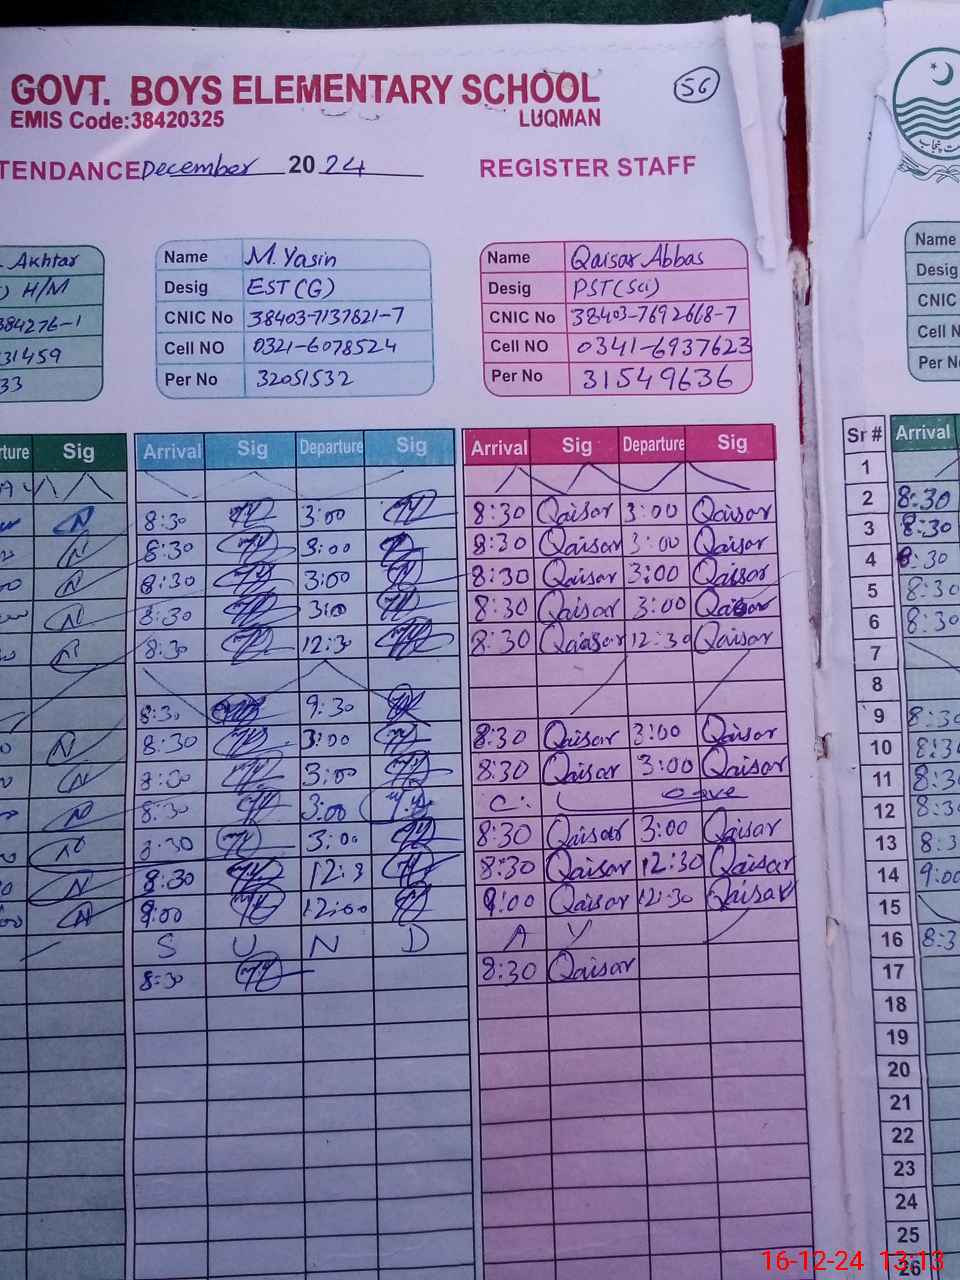 GOVT. BOYS ELEMENTARY SCHOOL
56
EMIS Code:38420325 LUQMAN
TENDANCE December 2024 REGISTER STAFF
Akhtar
H/M
384276-1
31459
33
Name M. Yasin
Desig EST(G)
CNIC No 38403-7137821-7
Cell NO 0321-6078524
Per No 32051532
Name Qaisar Abbas
Desig PST(Sci)
CNIC No 38403-7692668-7
Cell NO 0341-6937623
Per No 31549636
Name
Desig
CNIC
Cell N
Per No
rture Sig Arrival Sig Departure Sig Arrival Sig Departure Sig Sr # Arrival
1
8:30 3:00 8:30 Qaisar 3:00 Qaisar 2 8:30
8:30 3:00 8:30 Qaisar 3:00 Qaisar 3 8:30
8:30 3:00 8:30 Qaisar 3:00 Qaisar 4 8:30
8:30 3:00 8:30 Qaisar 3:00 Qaisar 5 8:30
8:30 12:30 8:30 Qaisar 12:30 Qaisar 6 8:30
7
8:30 9:30 8
8:30 3:00 8:30 Qaisar 3:00 Qaisar 9 8:30
3:00 8:30 Qaisar 3:00 Qaisar 10 8:30
8:30 3:00 C. Leave 11 8:30
8:30 3:00 8:30 Qaisar 3:00 Qaisar 12 8:30
8:30 12:3 8:30 Qaisar 12:30 Qaisar 13 8:3
9:00 12:00 9:00 Qaisar 12:30 Qaisar 14 9:00
S U N D A Y 15
8:30 8:30 Qaisar 16 8:3
17
18
19
20
21
22
23
24
25
26
16-12-24 13:13